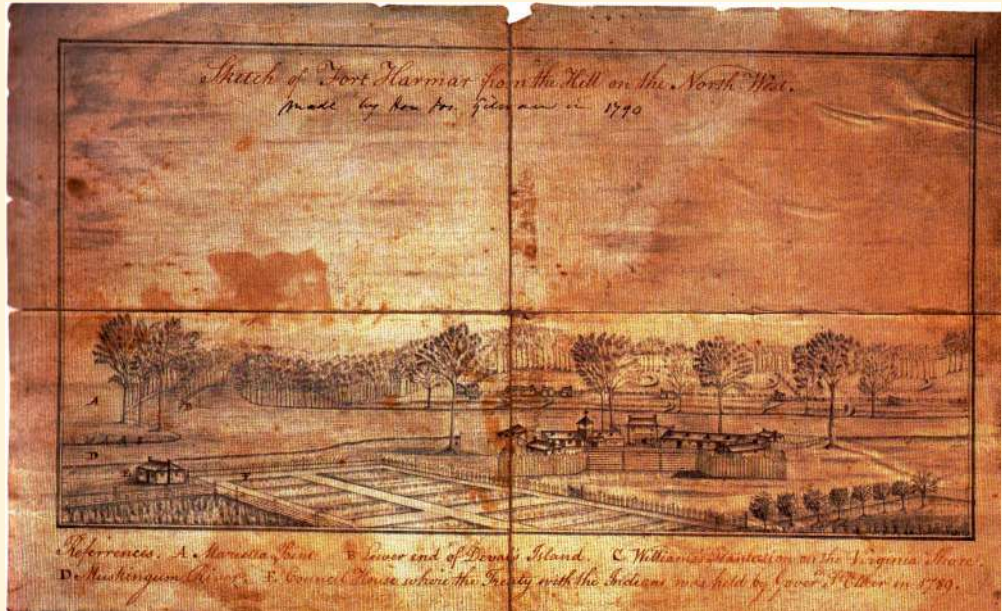 Sketch of Fort Harmar from the Hill on the North West.
made by Hon Jos. Gilman in 1790
A
B
D
E
F
References. A Marietta Point B Lower end of Devals Island. C Williams Plantation on the Virginia Shore.
D Muskingum River. E. Council House where the Treaty with the Indians was held by Gover St Clair in 1789.